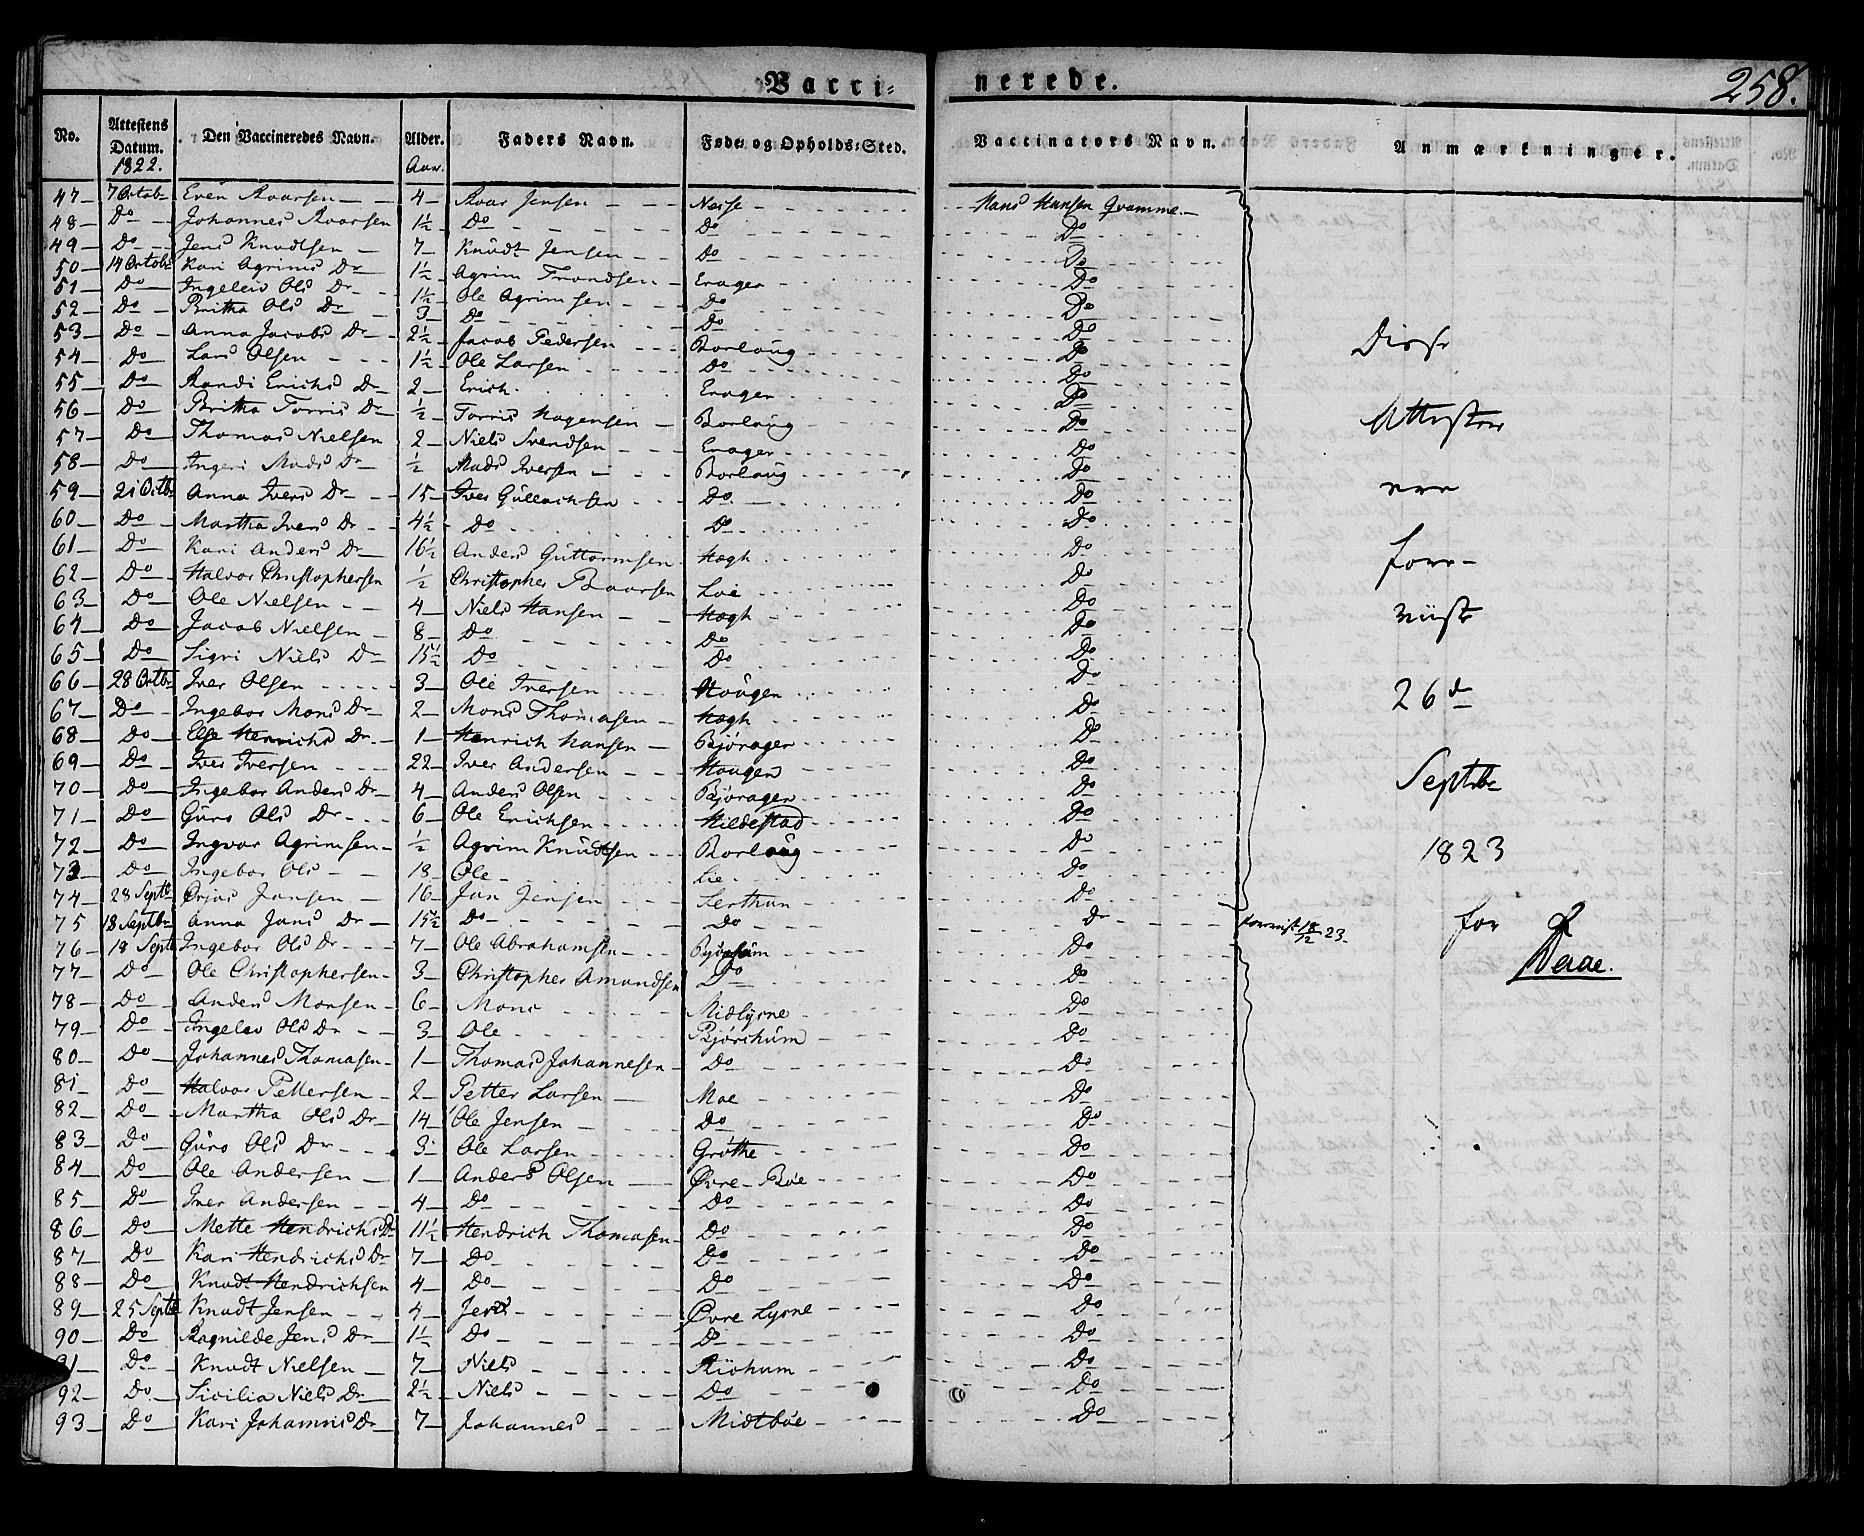 Vacci=
nerede.
258.
No. Attestens Datum. 1822. Den Vaccineredes Navn. Alder. Aar. Faders Navn. Føde- og Opholds-Sted. Vaccinators Navn. Anmærkninger.
47 7 Octob. Even Roarsen 4 Roar Jensen Næsse Hans Hansen Qvamme.
48 Do Johannes Roarsen 1½ Do Do Do
49 Do Jens Knudtsen 7 Knudt Jensen Do Do
50 14 Octob. Kari Agrims Dr 1½ Agrim Trondsen Erager Do
51 Do Ingeleiv Ols Dr 1½ Ole Agrimsen Do Do
52 Do Britha Ols Dr 3 Do Do Do
53 Do Anna Jacobs Dr 2½ Jacob Pedersen Borlaug Do
54 Do Lars Olsen 1½ Ole Larsen Do Do
55 Do Randi Erichs Dr 2 Erich Erager Do
56 Do Britha Torris Dr ½ Torris Hagensen Borlaug Do
57 Do Thomas Nielsen 2 Niels Svendsen Erager Do
58 Do Ingeri Mads Dr ½ Mads Iversen Borlaug Do
59 21 Octb. Anna Ivers Dr 15 Iver Gullachsen Do Do
60 Do Martha Ivers Dr 4½ Do Do Do
61 Do Kari Anders Dr 16½ Anders Guttormsen Hægh Do
62 Do Halvor Christophersen ½ Christopher Baarsen Loe Do
63 Do Ole Nielsen 4 Niels Hansen Hægh Do
64 Do Jacob Nielsen 8 Do Do Do
65 Do Sigri Niels Dr 15½ Do Do Do
66 28 Octbr Iver Olsen 3 Ole Iversen Hougen Do
67 Do Ingebor Mons Dr 2 Mons Thomasen Hægh Do
68 Do Else Henrichs Dr 1 Henrich Hansen Bjørager Do
69 Do Iver Iversen 22 Iver Andersen Hougen Do
70 Do Ingebor Anders Dr 4 Anders Olsen Bjørager Do
71 Do Guro Ols Dr 6 Ole Erichsen Hildestad Do
72 Do Ingvar Agrimsen ½ Agrim Knudtsen Borlaug Do
73 Do Ingebor Ols 18 Ole Lie Do
74 28 Septb Jansen 16 Jan Jensen Do
75 18 Septbr Anna Jans Dr 15½ Do Do Do
76 18 Septb Ingebor Ols Dr 7 Ole Abrahamsen Do
77 Do Ole Christophersen 3 Christopher Amundsen Do Do
78 Do Anders Monsen 6 Mons Midlysne Do
79 Do Ingelev Ols Dr 3 Ole Bjørchum Do
80 Do Johannes Thomasen 1 Thomas Johannesen Do Do
81 Do Halvor Pettersen 2 Petter Larsen Moe Do
82 Do Martha Ols Dr 14 Ole Jensen Do Do
83 Do Guro Ols Dr 3 Ole Larsen Grøthe Do
84 Do Ole Andersen 1 Anders Olsen Øvre-Bøe Do
85 Do Iver Andersen 4 Do Do Do
86 Do Mette Hendrichs Dr 11½ Hendrich Thomasen Do Do
87 Do Kari Hendrichs Dr 7 Do Do Do
88 Do Knudt Hendrichsen 4 Do Do Do
89 25 Septb Knudt Jensen 4 Jens Øvre Lysne Do
90 Do Ragnilde Jens Dr 1½ Do Do Do
91 Do Knudt Nielsen 7 Niels Do
92 Do Sicilia Niels Dr 2½ Niels Do Do
93 Do Kari Johannis Dr 7 Johannes Midtbøe Do
Disse
Attester
ere
fore-
viist
26de
Septbr
1823
forevist 18/12 23.
for
Daae.